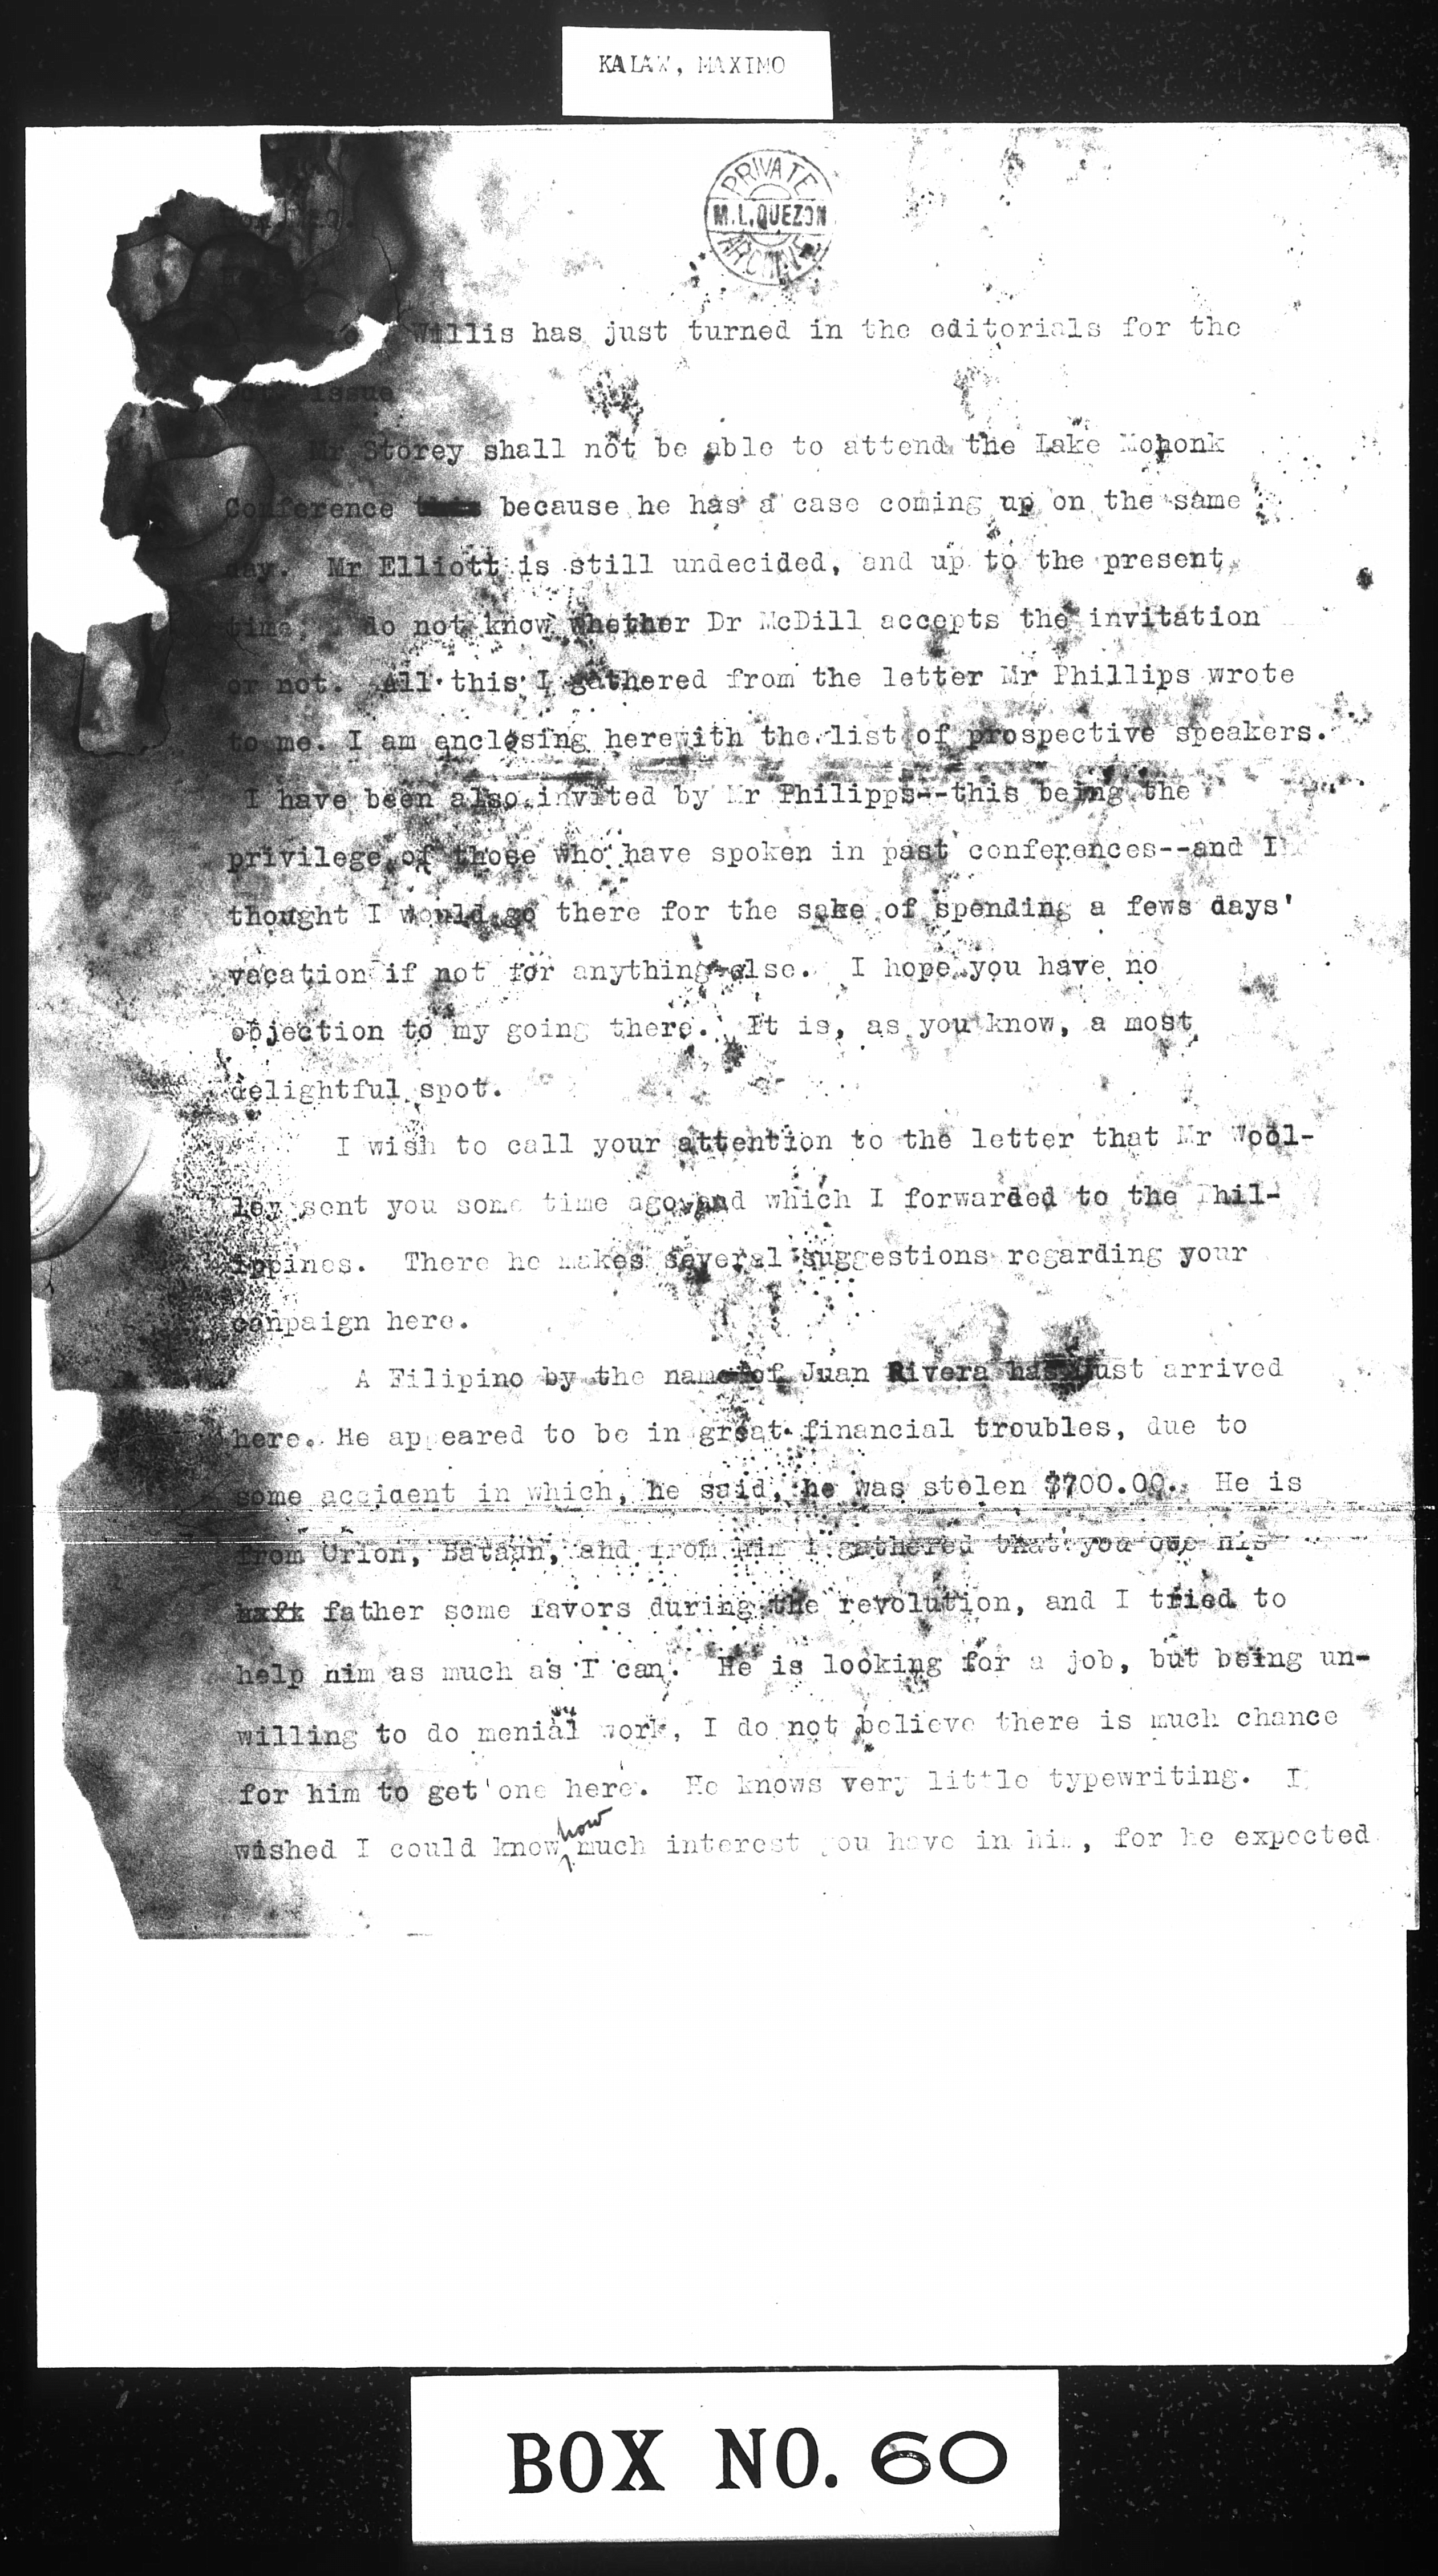 KALAW, MAXIMO
PRIVATE
M.L.QUEZON
ARCHIVES
Willis has just turned in the editorials for the
issue
Mr Storey shall not be able to attend the Lake Mohonk
Conference because he has a case coming up on the same
day. Mr Elliott is still undecided, and up to the present
time, I do not know whether Dr McDill accepts the invitation
or not. All this I gathered from the letter Mr Phillips wrote
to me. I am enclosing herewith the list of prospective speakers.
I have been also invited by Mr Philipps--this being the
privilege of those who have spoken in past conferences--and I
thought I would go there for the sake of spending a fews days'
vacation if not for anything else. I hope you have no
objection to my going there. It is, as you know, a most
delightful spot.
I wish to call your attention to the letter that Mr Wool-
ley sent you some time ago and which I forwarded to the Phil-
ippines. There he makes several suggestions regarding your
campaign here.
A Filipino by the name of Juan Rivera has just arrived
here. He appeared to be in great financial troubles, due to
some accident in which, he said, he was stolen $700.00. He is
from Orion, Bataan, and from him I gathered that you owe his
father some favors during the revolution, and I tried to
help him as much as I can. He is looking for a job, but being un-
willing to do menial work, I do not believe there is much chance
for him to get one here. He knows very little typewriting. I
wished I could know how much interest you have in him, for he expected
BOX NO. 60